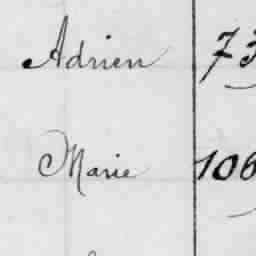 Adrien 73
Marie 106